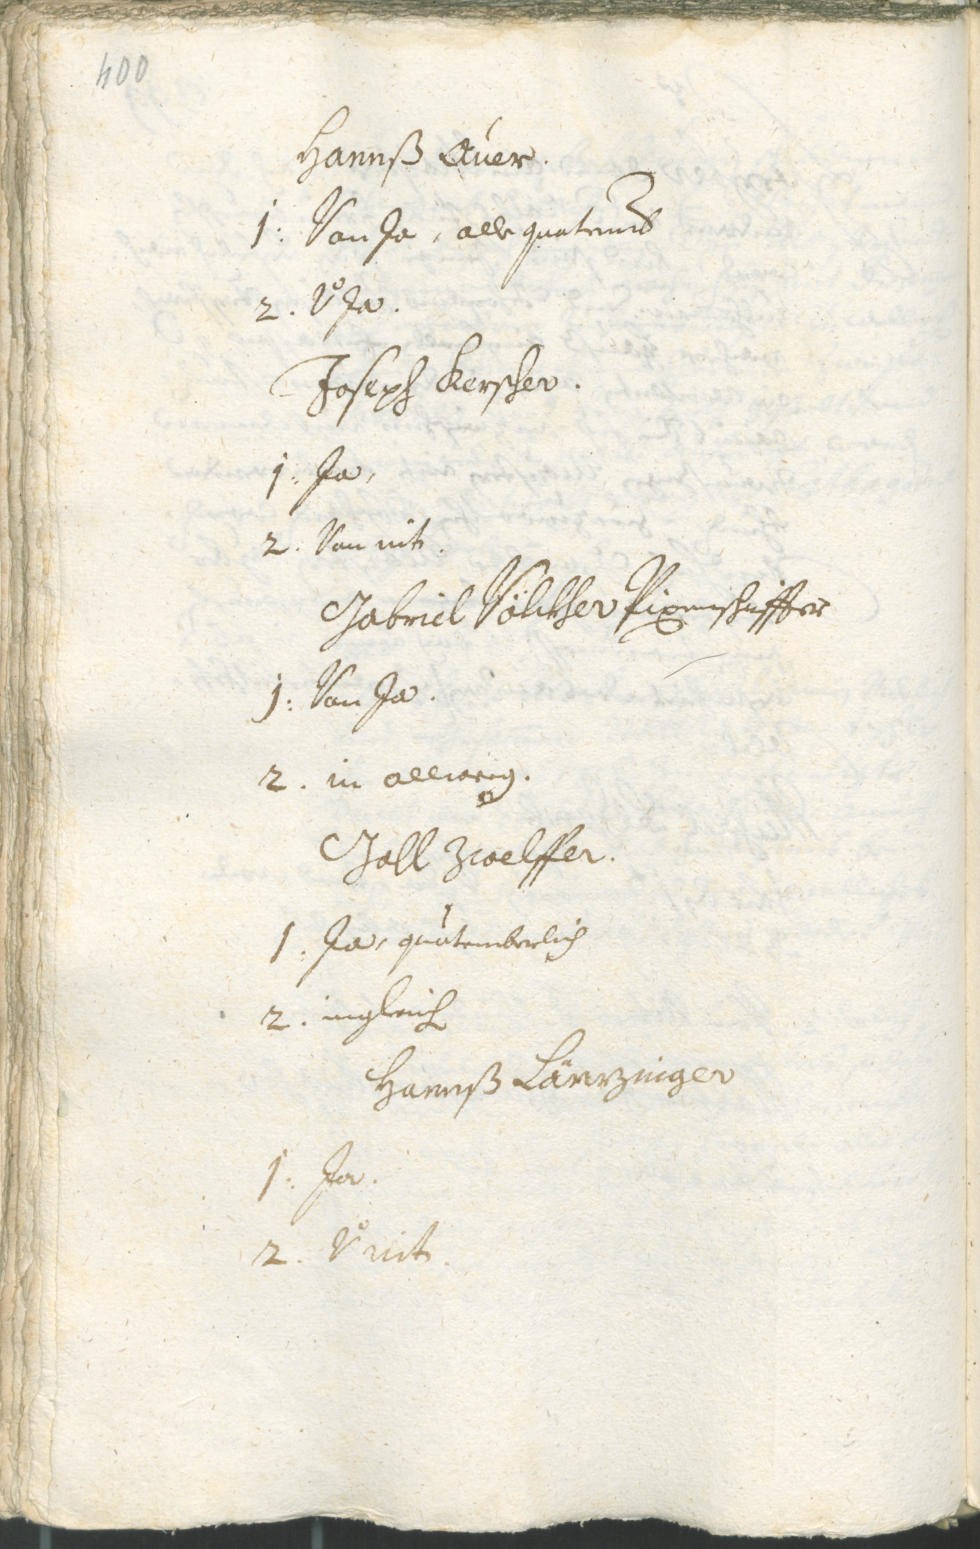 400
Hannß Auer.
1: Von Ja, alle quatember
2. Vo Ja.
Joseph Kerscher.
1: Ja,
2. Von nit.
Gabriel Völckher Pixenschiffter
1: Von Ja.
2. in allweeg.
Gall Zwelffer.
1. Ja, quatemberlich
2. ingleich
Hannß Lärrzinger
1: Ja.
2. Vo nit.